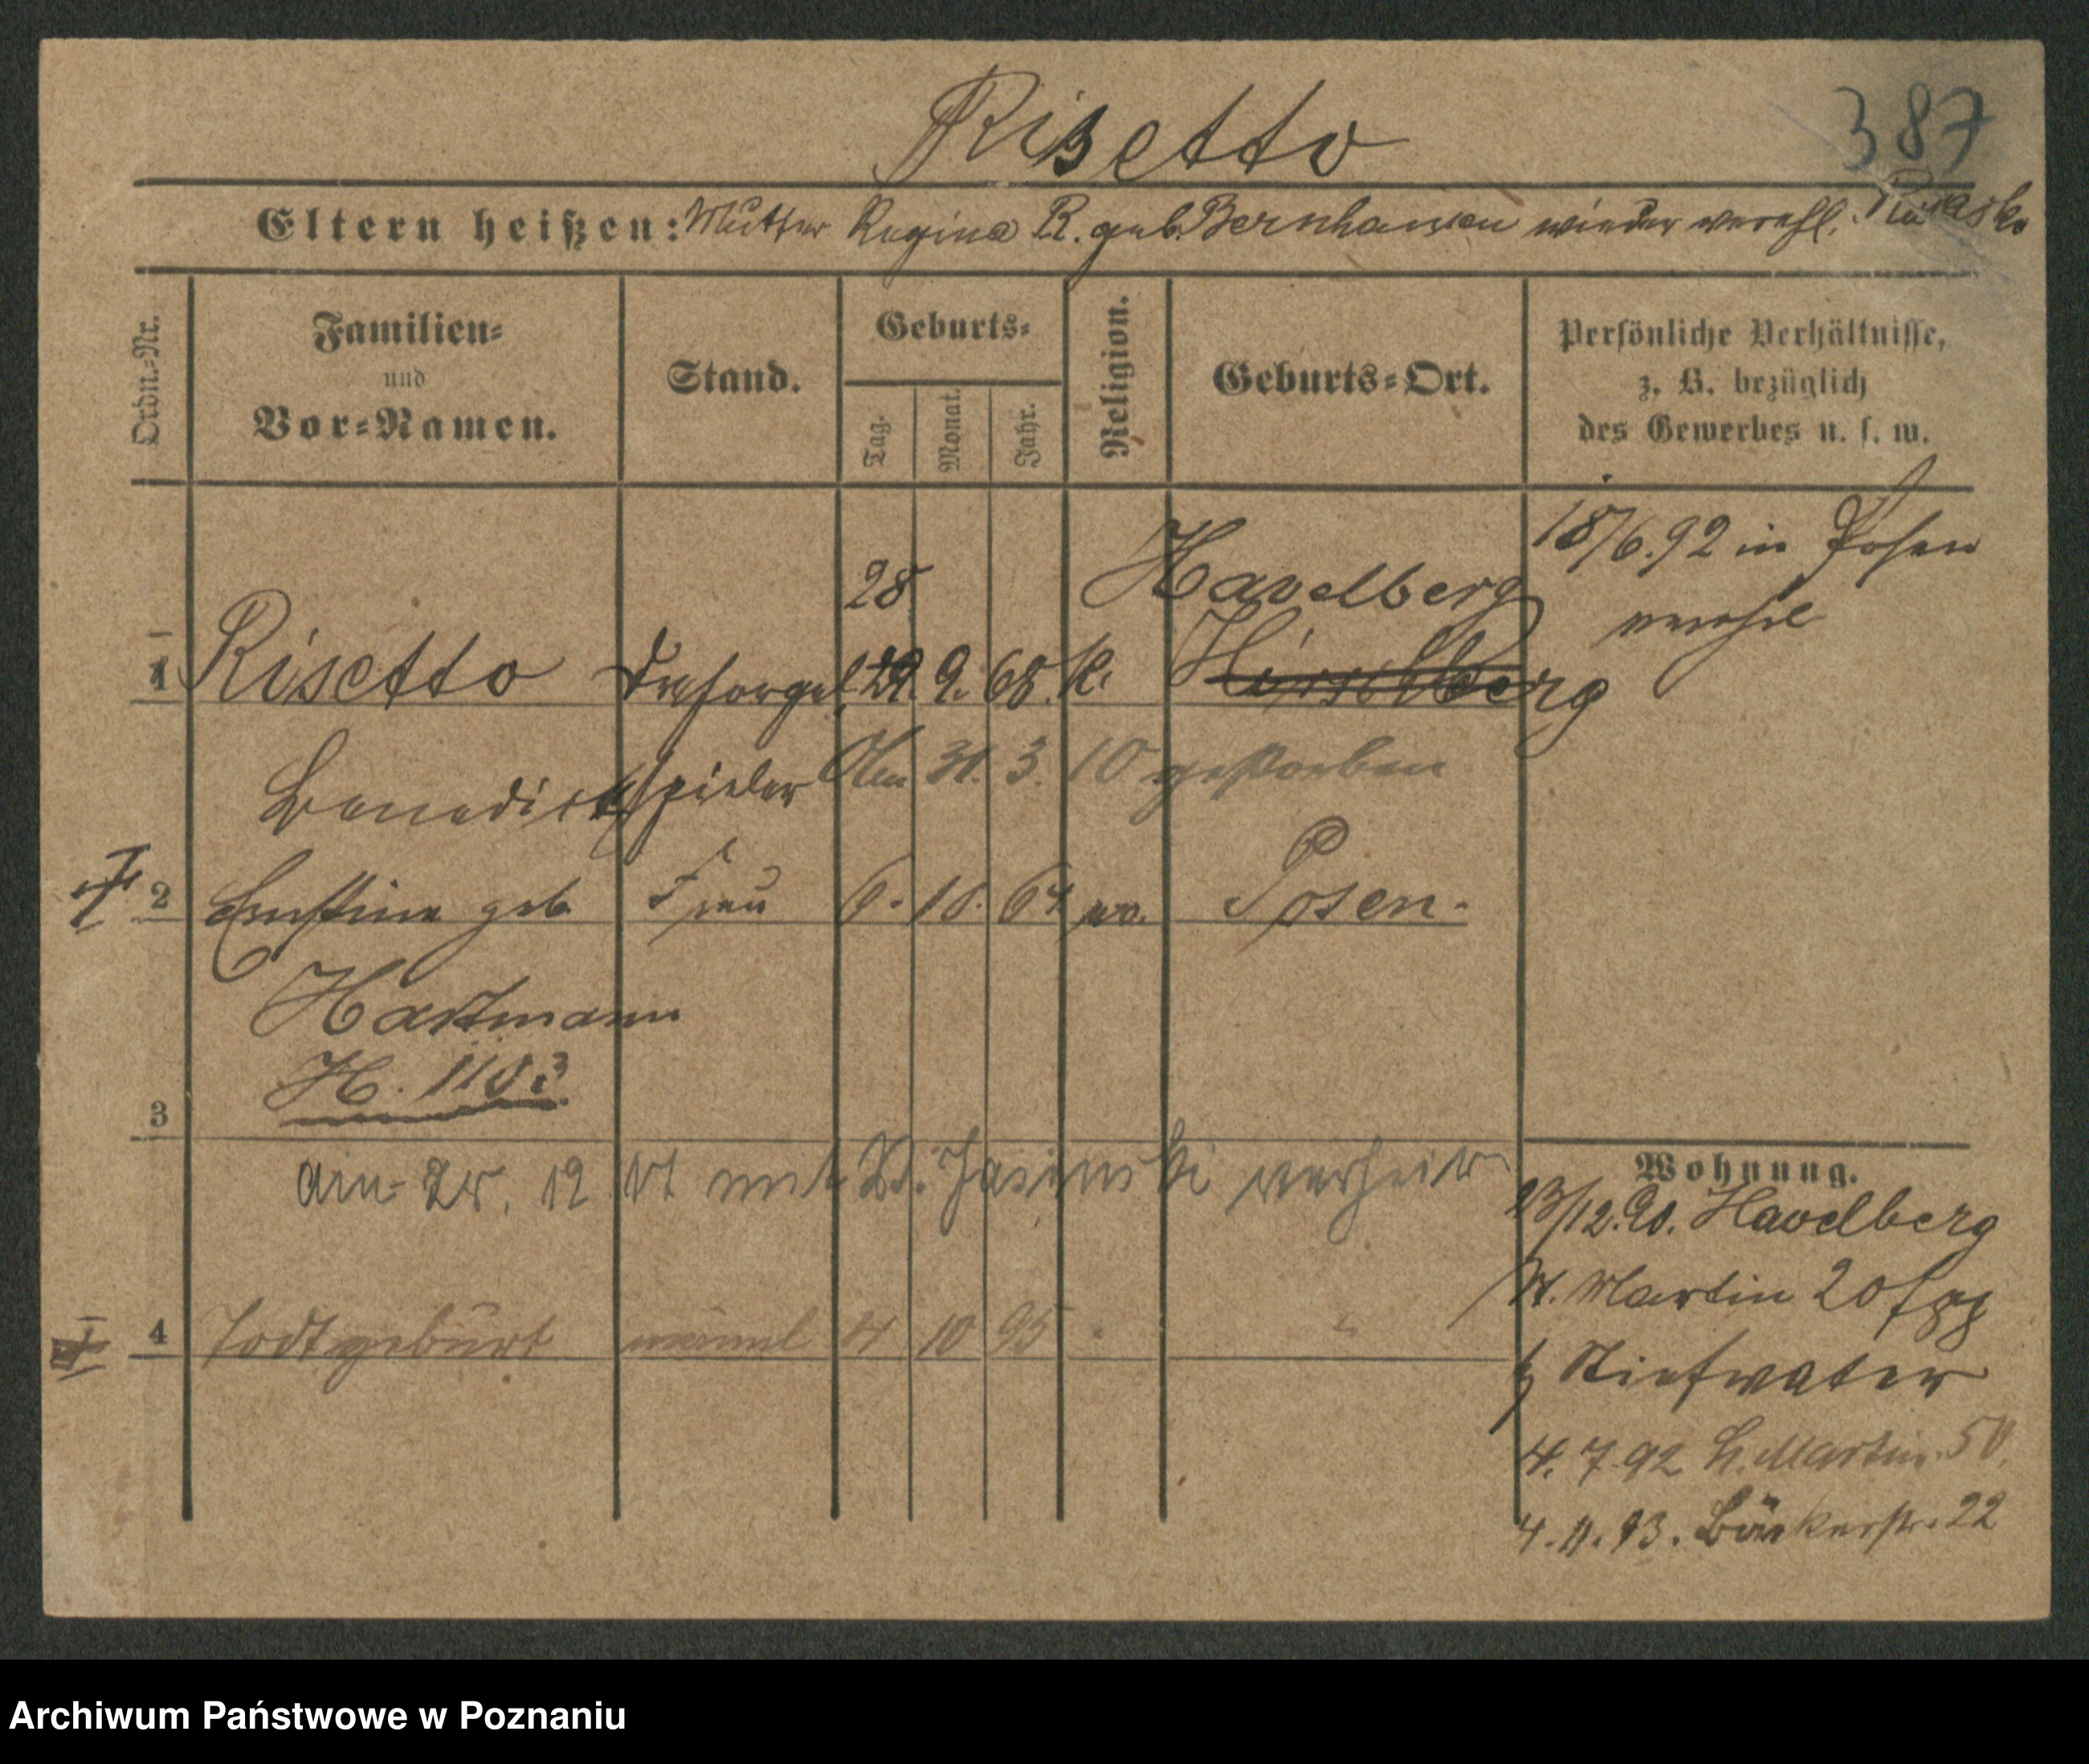 Risetto
387
Eltern heißen: Mutter Regina R. geb. Bernhausen wieder verehl.
Ordn.-Nr.
Familien-
und
Vor-Namen.
Stand.
Geburts-
Tag.
Monat.
Jahr.
Religion.
Geburts-Ort.
Persönliche Verhältnisse,
z. B. bezüglich
des Gewerbes u. s. w.
18/6.92 in Posen
verehl
28.
Havelberg
1 Risetto Drehorgel 29. 9. 68. K. Hirschberg
Benedikt spieler Am 31. 3. 10 gestorben
2 Ernstine geb Frau 6. 10. 64 ev. Posen.
Hartmann
H.
3
am 12 mit Jasinski verheir
Wohnung.
23/12.90. Havelberg
St. Martin 20
b Stiefvater
4 Todtgeburt männl 4 10 95
4. 7. 92 St. Martin. 50.
4. 11. 93. Bäckerstr. 22
Archiwum Państwowe w Poznaniu